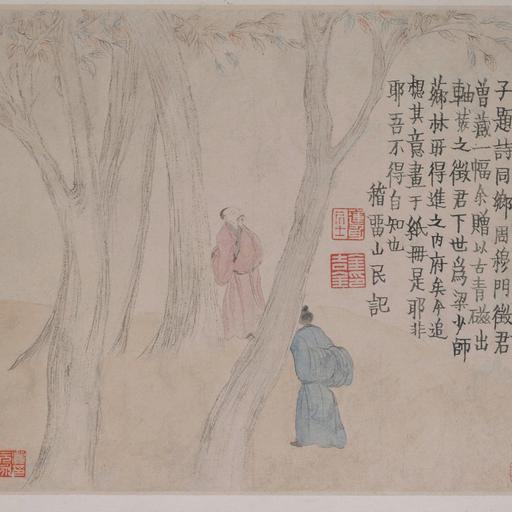 子題詩同鄉周穆門徵君
曾藏一幅余贈以古青磁出
軸裝之徵君下世爲梁少師
薌林所得進之内府矣今追
想其意畫于紙冊是耶非
耶吾不得自知也
稽畱山民記
金印吉金